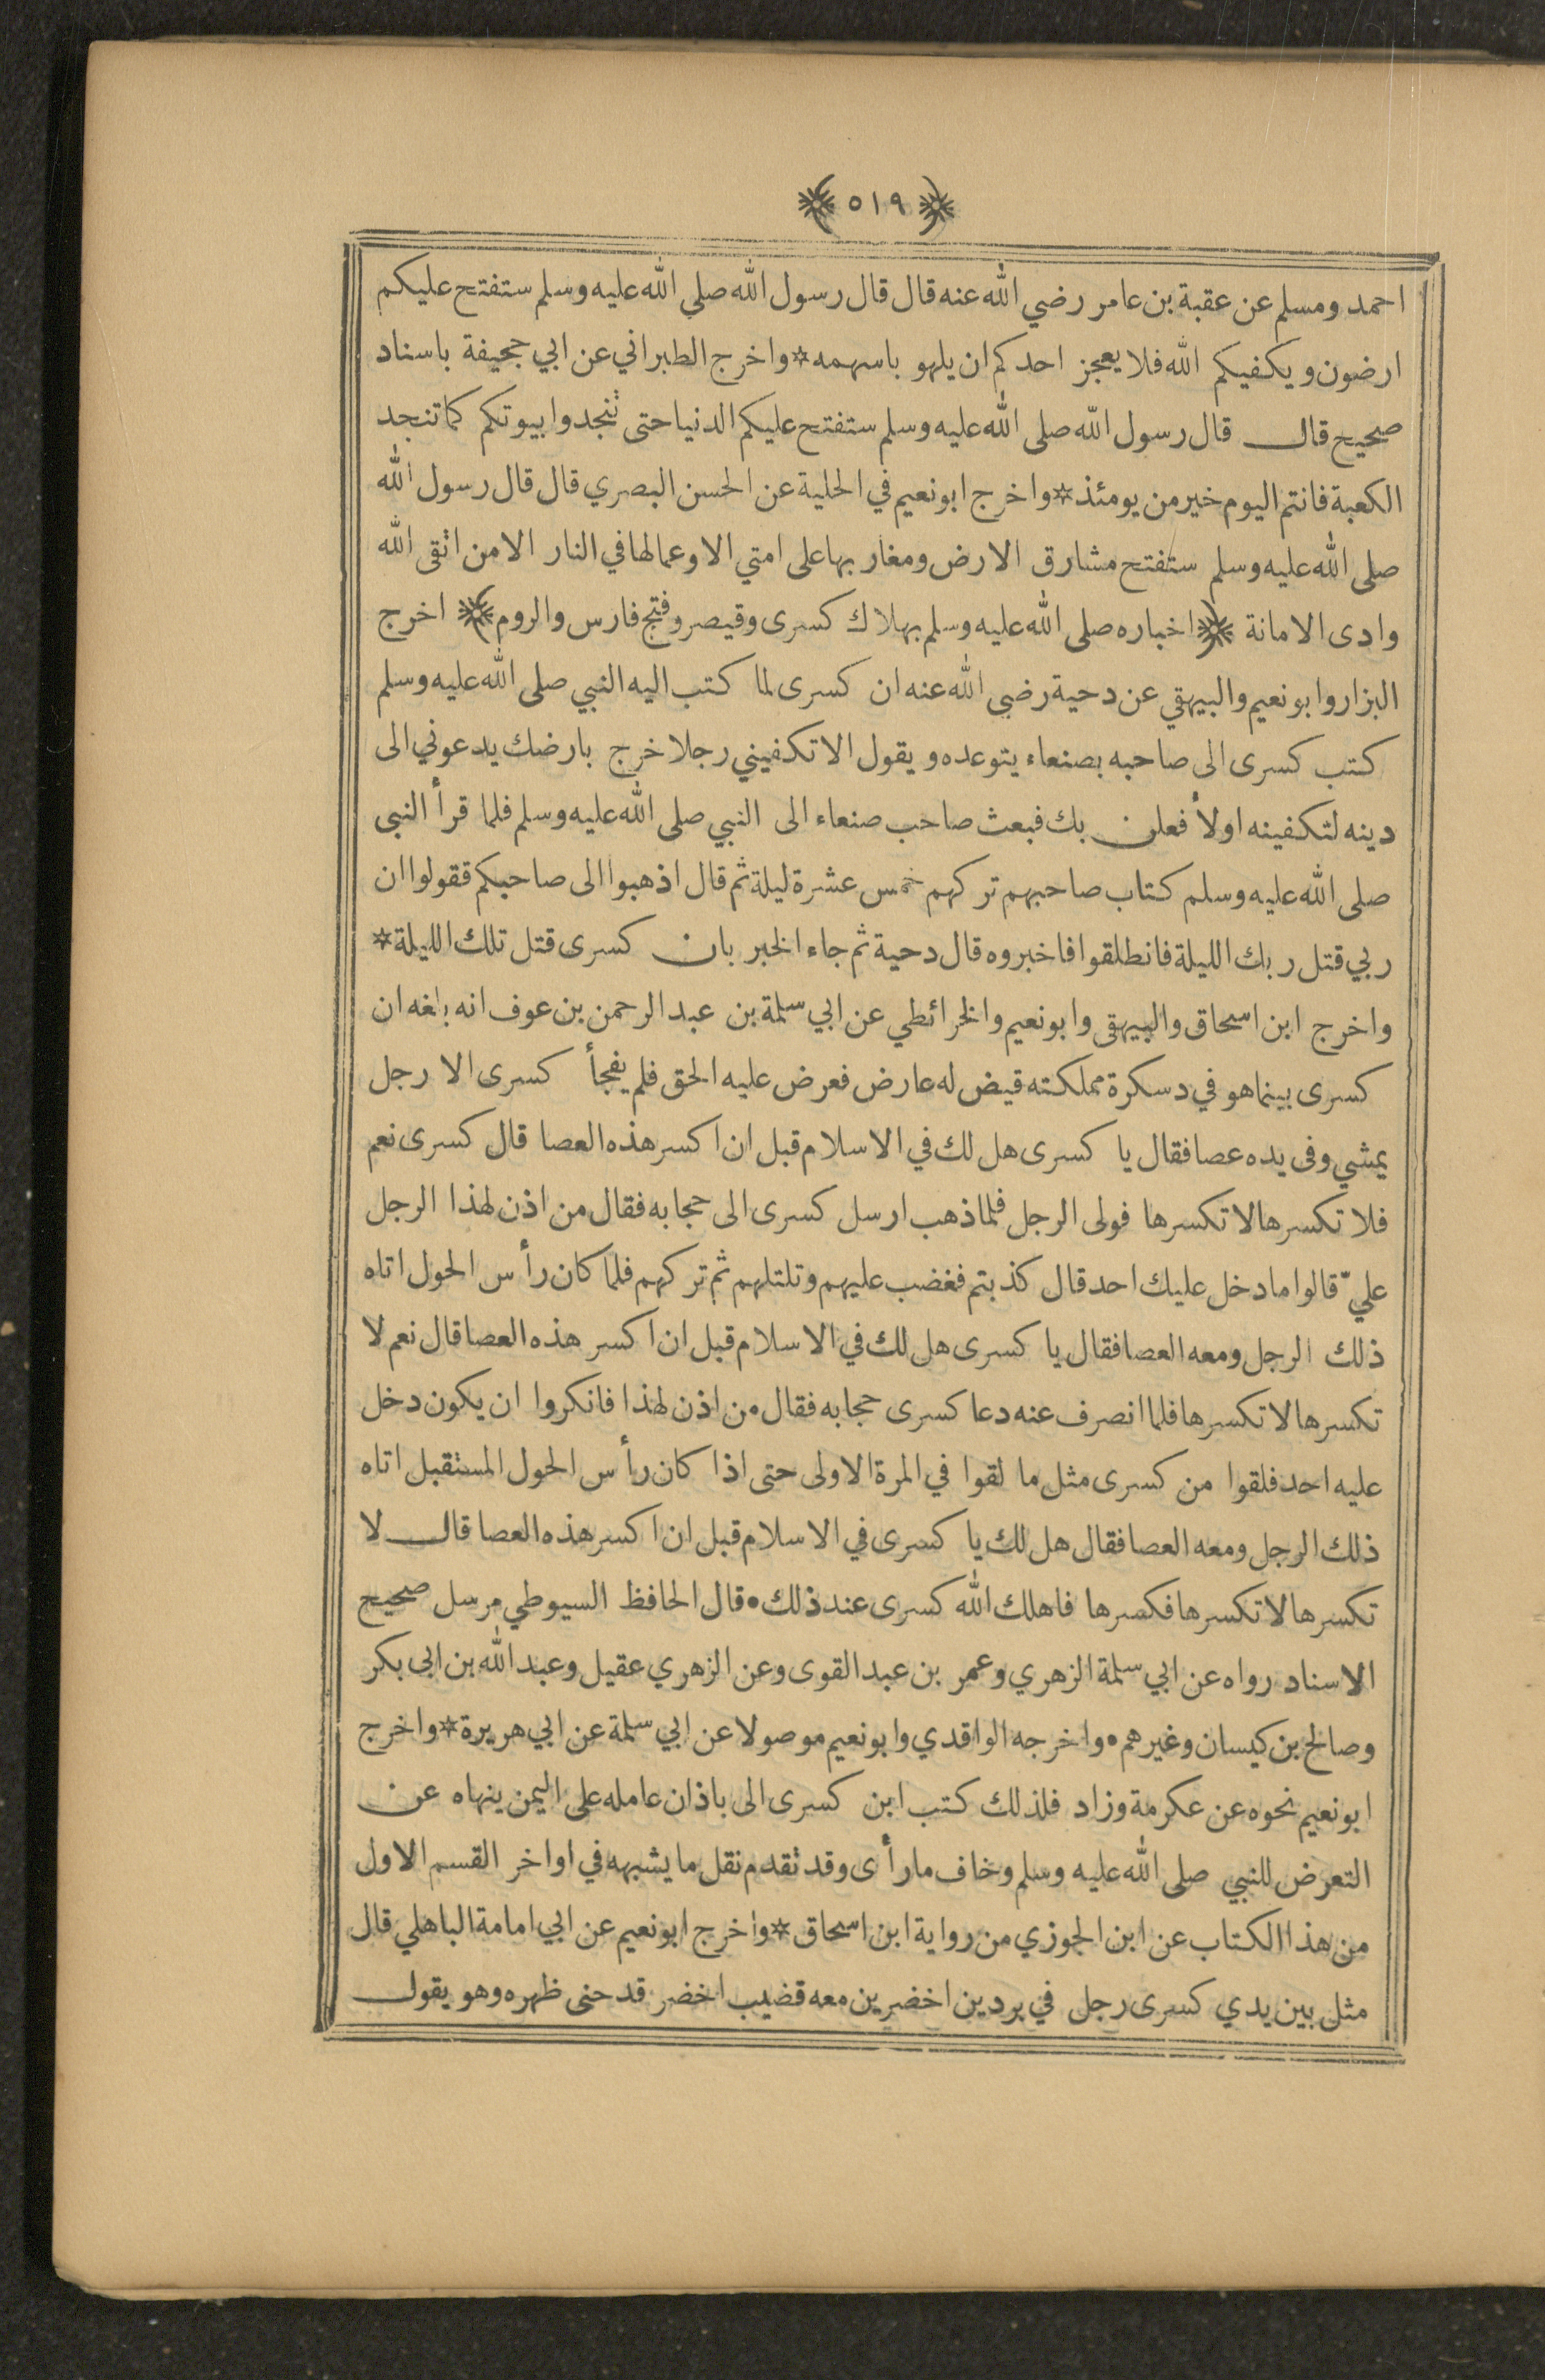 ﴿ ٥١٩ ﴾
احمد ومسلم عن عقبة بن عامر رضي الله عنه قال قال رسول الله صلي الله عليه وسلم ستفتح عليكم
ارضون ويكفيكم الله فلا يعجز احدكم ان يلهو باسهمه * واخرج الطبراني عن ابي جحيفة باسناد
صحيح قال قال رسول الله صلى الله عليه وسلم ستفتح عليكم الدنيا حتى تنجدوا بيوتكم كما تنجد
الكعبة فانتم اليوم خير من يومئذ * واخرج ابو نعيم في الحلية عن الحسن البصري قال قال رسول الله
صلى الله عليه وسلم ستفتح مشارق الارض ومغاربها على امتي الا وعمالها في النار الا من اتقى الله
وادى الامانة ﴿ اخباره صلى الله عليه وسلم بهلاك كسرى وقيصر وفتح فارس والروم ﴾ اخرج
البزار وابو نعيم والبيهقي عن دحية رضي الله عنه ان كسرى لما كتب اليه النبي صلى الله عليه وسلم
كتب كسرى الى صاحبه بصنعاء يتوعده ويقول الا تكفيني رجلا خرج بارضك يدعوني الى
دينه لتكفينه اولأ فعلن بك فبعث صاحب صنعاء الى النبي صلى الله عليه وسلم فلما قرأ النبي
صلى الله عليه وسلم كتاب صاحبهم تركهم خمس عشرة ليلة ثم قال اذهبوا الى صاحبكم فقولوا ان
ربي قتل ربك الليلة فانطلقوا فاخبروه قال دحية ثم جاء الخبر بان كسرى قتل تلك الليلة *
واخرج ابن اسحاق والبيهقى وابو نعيم والخرائطي عن ابي سلمة بن عبد الرحمن بن عوف انه بلغه ان
كسرى بينما هو في دسكرة مملكته قيض له عارض فعرض عليه الحق فلم يفجأ كسرى الا رجل
يمشي وفى يده عصا فقال يا كسرى هل لك في الاسلام قبل ان اكسر هذه العصا قال كسرى نعم
فلا تكسرها لا تكسرها فولى الرجل فلما ذهب ارسل كسرى الى حجابه فقال من اذن لهذا الرجل
عليّ قالوا ما دخل عليك احد قال كذبتم فغضب عليهم وتلتلهم ثم تركهم فلما كان رأس الحول اتاه
ذلك الرجل ومعه العصا فقال يا كسرى هل لك في الاسلام قبل ان اكسر هذه العصا قال نعم لا
تكسرها لا تكسرها فلما انصرف عنه دعا كسرى حجابه فقال من اذن لهذا فانكروا ان يكون دخل
عليه احد فلقوا من كسرى مثل ما لقوا في المرة الاولى حتى اذا كان رأس الحول المستقبل اتاه
ذلك الرجل ومعه العصا فقال هل لك يا كسرى في الاسلام قبل ان اكسر هذه العصا قال لا
تكسرها لا تكسرها فكسرها فاهلك الله كسرى عند ذلك • قال الحافظ السيوطي مرسل صحيح
الاسناد رواه عن ابي سلمة الزهري وعمر بن عبد القوى وعن الزهري عقيل وعبد الله بن ابى بكر
وصالح بن كيسان وغيرهم • واخرجه الواقدي وابو نعيم موصولا عن ابي سلمة عن ابي هريرة * واخرج
ابو نعيم نحوه عن عكرمة وزاد فلذلك كتب ابن كسرى الى باذان عامله على اليمن ينهاه عن
التعرض للنبي صلى الله عليه وسلم وخاف ما رأى وقد تقدم نقل ما يشبهه في اواخر القسم الاول
من هذا الكتاب عن ابن الجوزي من رواية ابن اسحاق * واخرج ابو نعيم عن ابي امامة الباهلي قال
مثل بين يدي كسرى رجل في بردين اخضرين معه قضيب اخضر قد حنى ظهره وهو يقول